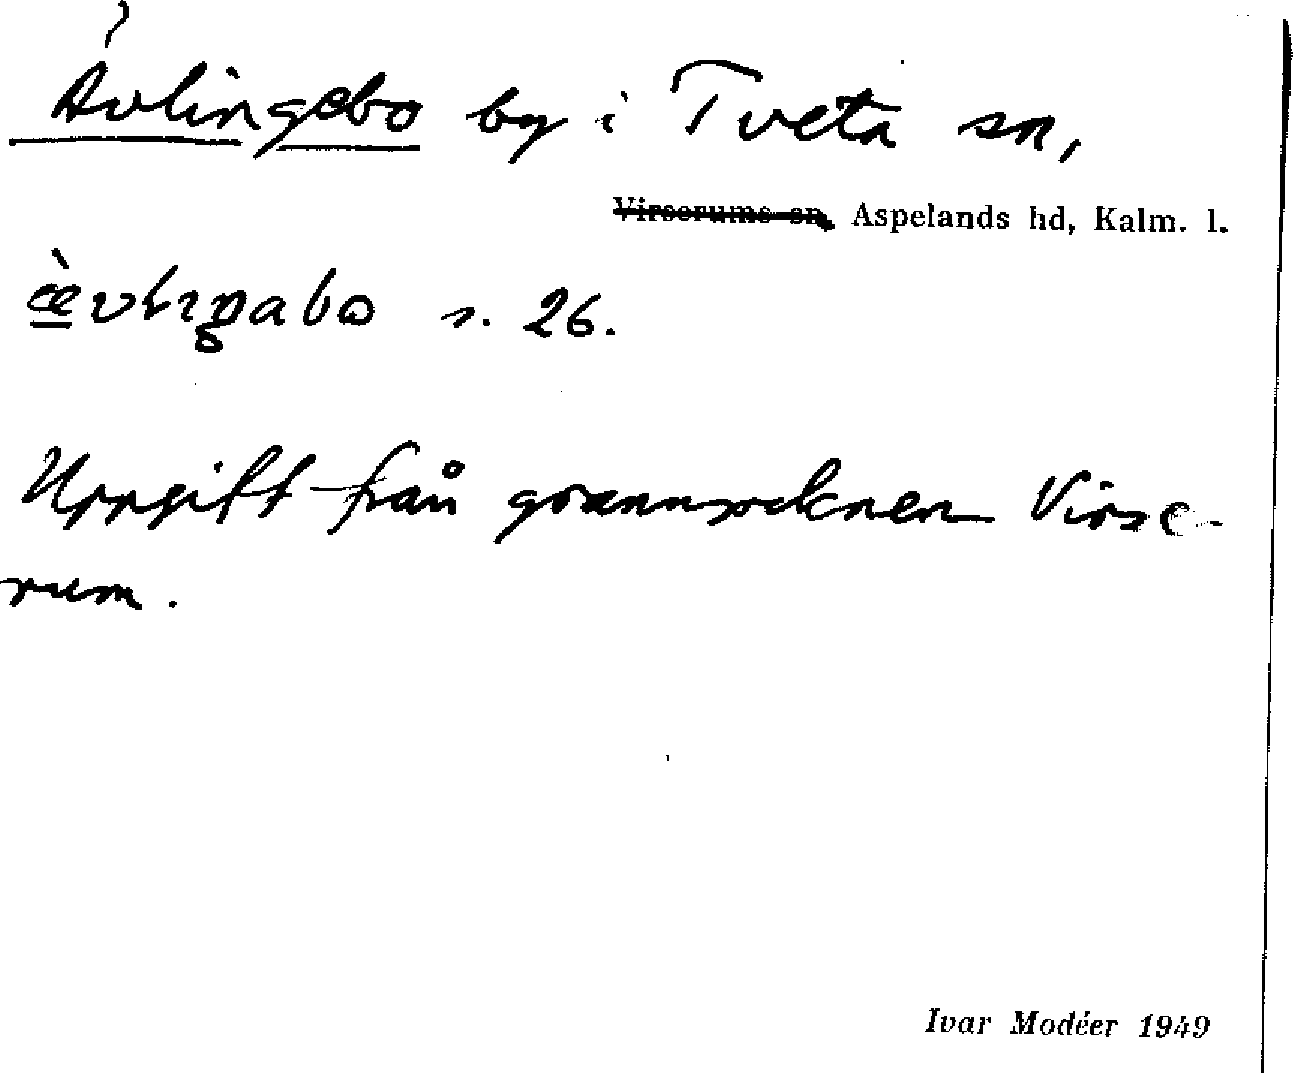 Avlingebo by i Tveta sn,
Virserums sn, Aspelands hd, Kalm. l.
s. 26.
Uppgift från grannsocknen Virse-
rum.
Ivar Modéer 1949